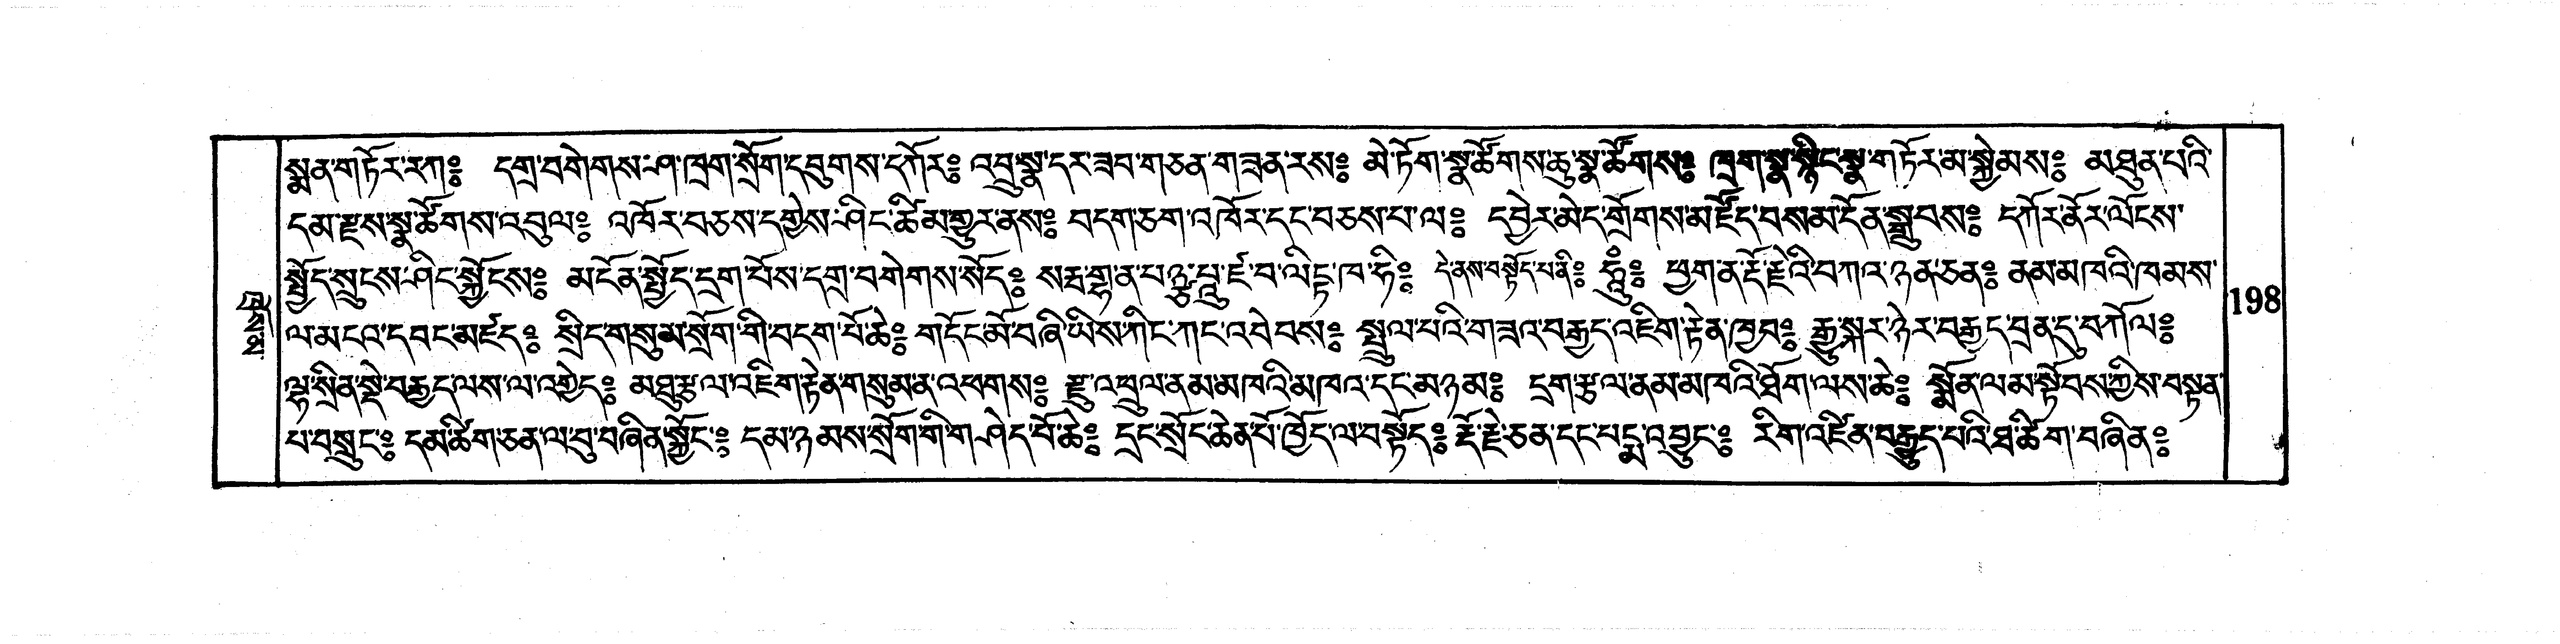 སྨན་གཏོར་རཀ༔ དགྲ་བགེགས་ཤ་ཁྲག་སྲོག་དབུགས་དཀོར༔ འབྲུ་སྣ་དར་ཟབ་གཅན་གཟན་རས༔ མེ་ཏོག་སྣ་ཚོགས་ཆུ་སྣ་ཚོགས༔ ཁྲག་སྣ་སྙིང་སྣ་གཏོར་མ་སྐྱེམས༔ མཐུན་པའི་
དམ་རྫས་སྣ་ཚོགས་འབུལ༔ འཁོར་བཅས་དགྱེས་ཤིང་ཚིམ་གྱུར་ནས༔ བདག་ཅག་འཁོར་དང་བཅས་པ་ལ༔ དབྱེར་མེད་གྲོགས་མཛོད་བསམ་དོན་སྒྲུབས༔ དཀོར་ནོར་ལོངས་
སྤྱོད་སྲུངས་ཤིང་སྐྱོངས༔ མངོན་སྤྱོད་དྲག་པོས་དགྲ་བགེགས་སོད༔ སརྦ་གྷྣན་པཉྩ་པཱུ་ཛ་བ་ལིངྟ་ཁ་ཧི༔ དེ་ནས་བསྟོད་པ་ནི༔ ཧཱུྃ༔ ཕྱག་ན་རྡོ་རྗེའི་བཀའ་ཉན་ཅན༔ ནམ་མཁའི་ཁམས་
ལ་མངའ་དབང་མཛད༔ སྲིད་གསུམ་སྲོག་གི་བདག་པོ་ཆེ༔ གདོང་མོ་བཞི་ཡིས་ཀིང་ཀང་འབེབས༔ སྤྲུལ་པའི་གཟའ་བརྒྱད་འཇིག་རྟེན་ཁྱབ༔ རྒྱུ་སྐར་ཉེར་བརྒྱད་བྲན་དུ་བཀོལ༔
ལྷ་སྲིན་སྡེ་བརྒྱད་ལས་ལ་འགྱེད༔ མཐུ་རྩལ་འཇིག་རྟེན་གསུམ་ན་འཕགས༔ རྫུ་འཕྲུལ་ནམ་མཁའི་མཁའ་དང་མཉམ༔ དྲག་རྩལ་ནམ་མཁའི་ཐོག་ལས་ཆེ༔ སྨོན་ལམ་སྟོབས་ཀྱིས་བསྟན་
པ་བསྲུང༔ དམ་ཚིག་ཅན་ལ་བུ་བཞིན་སྐྱོང༔ དམ་ཉམས་སྲོག་གི་གཤེད་པོ་ཆེ༔ དྲང་སྲོང་ཆེན་པོ་ཁྱོད་ལ་བསྟོད༔ རྡོ་རྗེ་ཅན་དང་པདྨ་འབྱུང༔ རིག་འཛིན་བརྒྱུད་པའི་ཐ་ཚིག་བཞིན༔
198